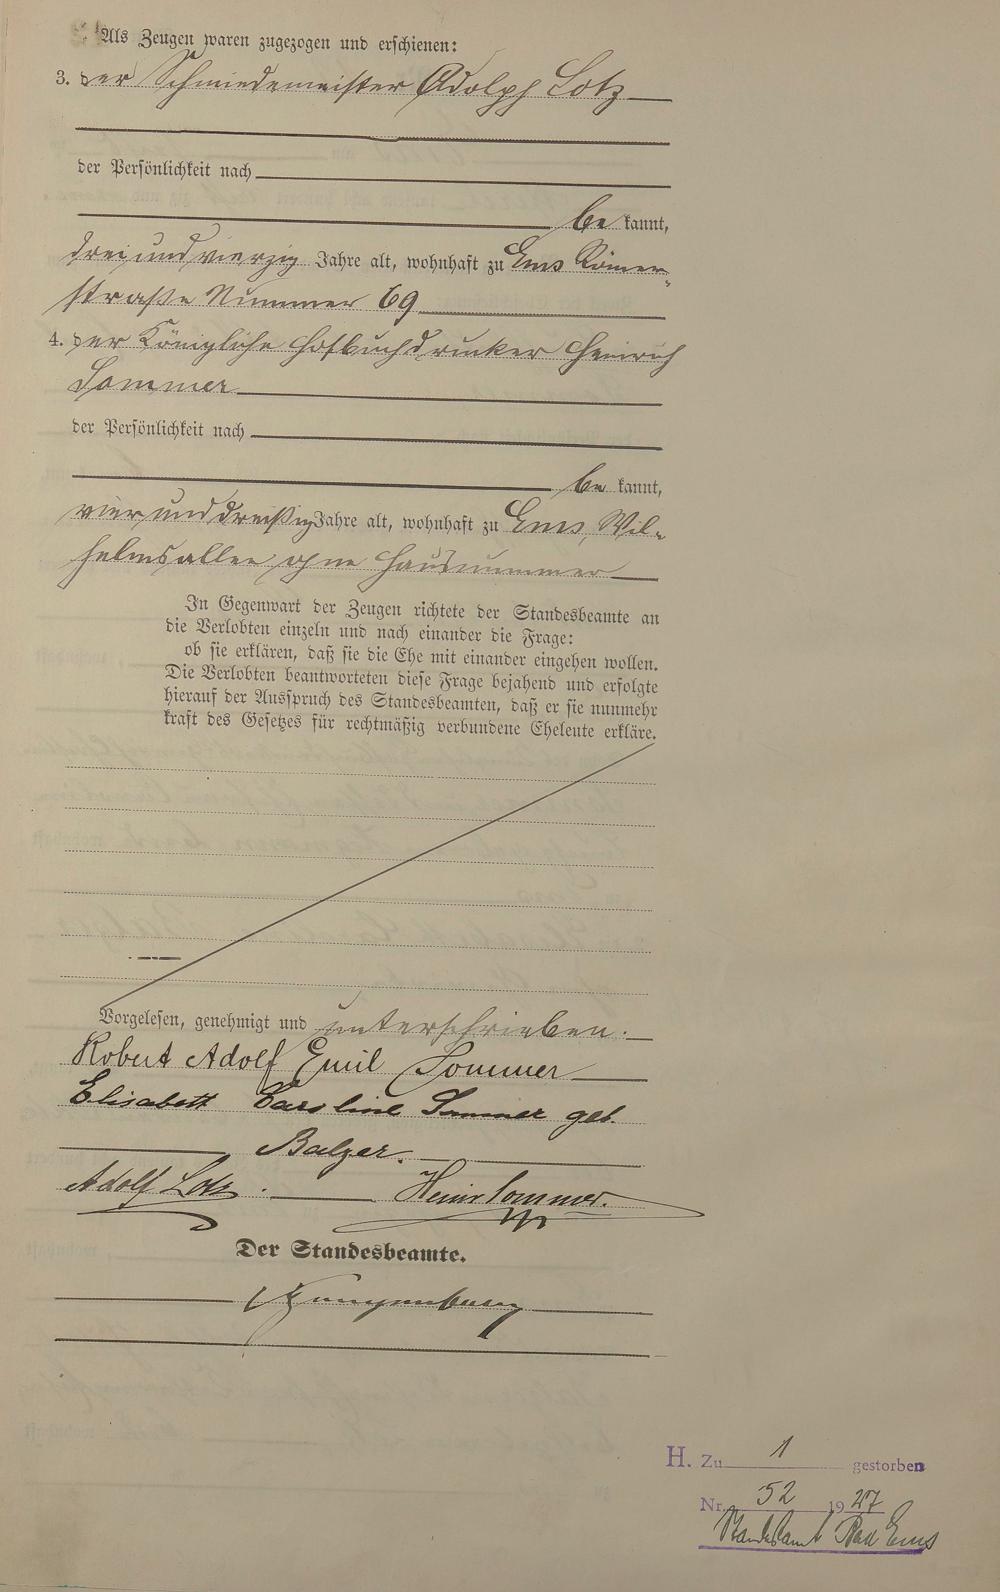 Als Zeugen waren zugezogen und erschienen:
3. der Schmiedemeister Adolph Lotz
der Persönlichkeit nach
be kannt,
drei und vierzig Jahre alt, wohnhaft zu Ems Römer-
straße Nummer 69
4. der Königliche Hofbuchdrucker Heinrich
Sommer
der Persönlichkeit nach
be kannt,
vier und dreißig Jahre alt, wohnhaft zu Ems, Wil-
helmsallee ohne Hausnummer
In Gegenwart der Zeugen richtete der Standesbeamte an
die Verlobten einzeln und nach einander die Frage:
ob sie erklären, daß sie die Ehe mit einander eingehen wollen.
Die Verlobten beantworteten diese Frage bejahend und erfolgte
hierauf der Ausspruch des Standesbeamten, daß er sie nunmehr
kraft des Gesetzes für rechtmäßig verbundene Eheleute erkläre.
Vorgelesen, genehmigt und unterschrieben.
Robert Adolf Emil Sommer
Elisabett Caroline Sommer geb.
Balzer.
Adolf Lotz. Heinr Sommer.
Der Standesbeamte.
H. Zu 1 gestorben
Nr. 52 1927
Standesamt Bad Ems